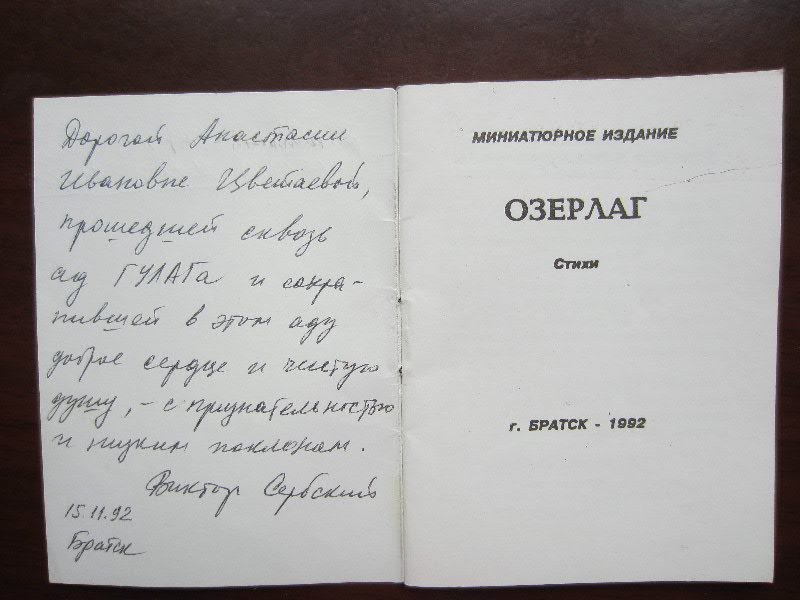 Дорогой Анастасии
Ивановне Цветаевой,
прошедшей сквозь
ад ГУЛАГа и сохра-
нившей в этом аду
доброе сердце и чистую
душу, – с признательностью
и низким поклоном.
Виктор Сербский
15.11.92
Братск
МИНИАТЮРНОЕ ИЗДАНИЕ
ОЗЕРЛАГ
Стихи
г. БРАТСК - 1992